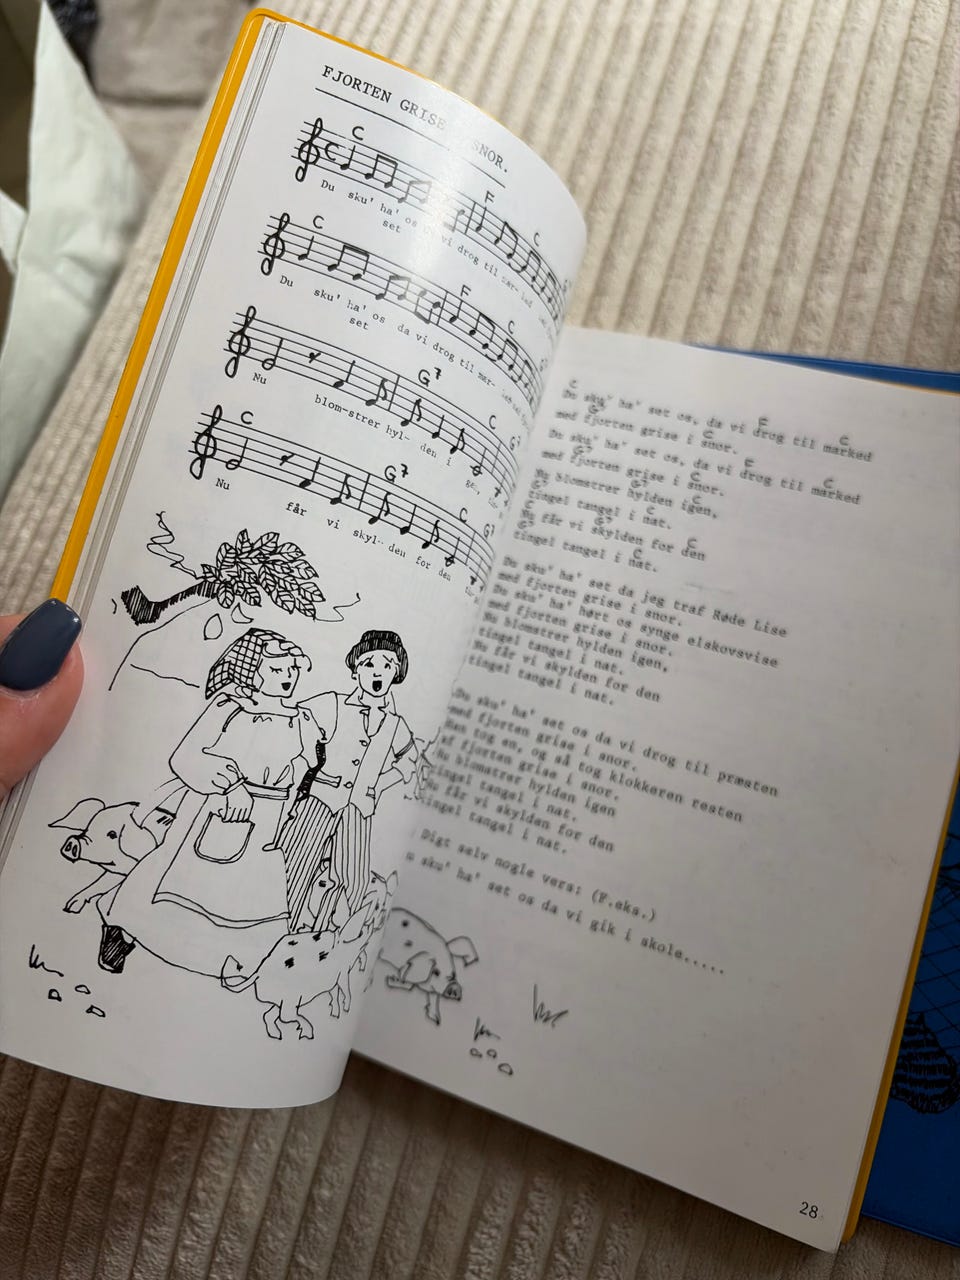 FJORTEN GRISE SNOR.
C
F
C
Du sku' ha' os da vi drog til mar- ked
set
C
F
C
Du sku' ha' os da vi drog til mar-
set
G7
C
G7
Nu blom-strer hyl- den i
C
G7
C
G7
Nu får vi skyl- den for den
C
Du sku' ha' set os, da vi drog til marked
med fjorten grise i snor.
Du sku' ha' set os, da vi drog til marked
med fjorten grise i snor.
Nu blomstrer hylden igen,
tingel tangel i nat.
Nu får vi skylden for den
tingel tangel i nat.
Du sku' ha' set da jeg traf Røde Lise
med fjorten grise i snor.
Du sku' ha' hørt os synge elskovsvise
med fjorten grise i snor.
Nu blomstrer hylden igen,
tingel tangel i nat.
Nu får vi skylden for den
tingel tangel i nat.
Du sku' ha' set os da vi drog til præsten
med fjorten grise i snor.
Han tog en, og så tog klokkeren resten
af fjorten grise i snor.
Nu blomstrer hylden igen
tingel tangel i nat.
Nu får vi skylden for den
tingel tangel i nat.
Digt selv nogle vers: (F.eks.)
sku' ha' set os da vi gik i skole.....
28.